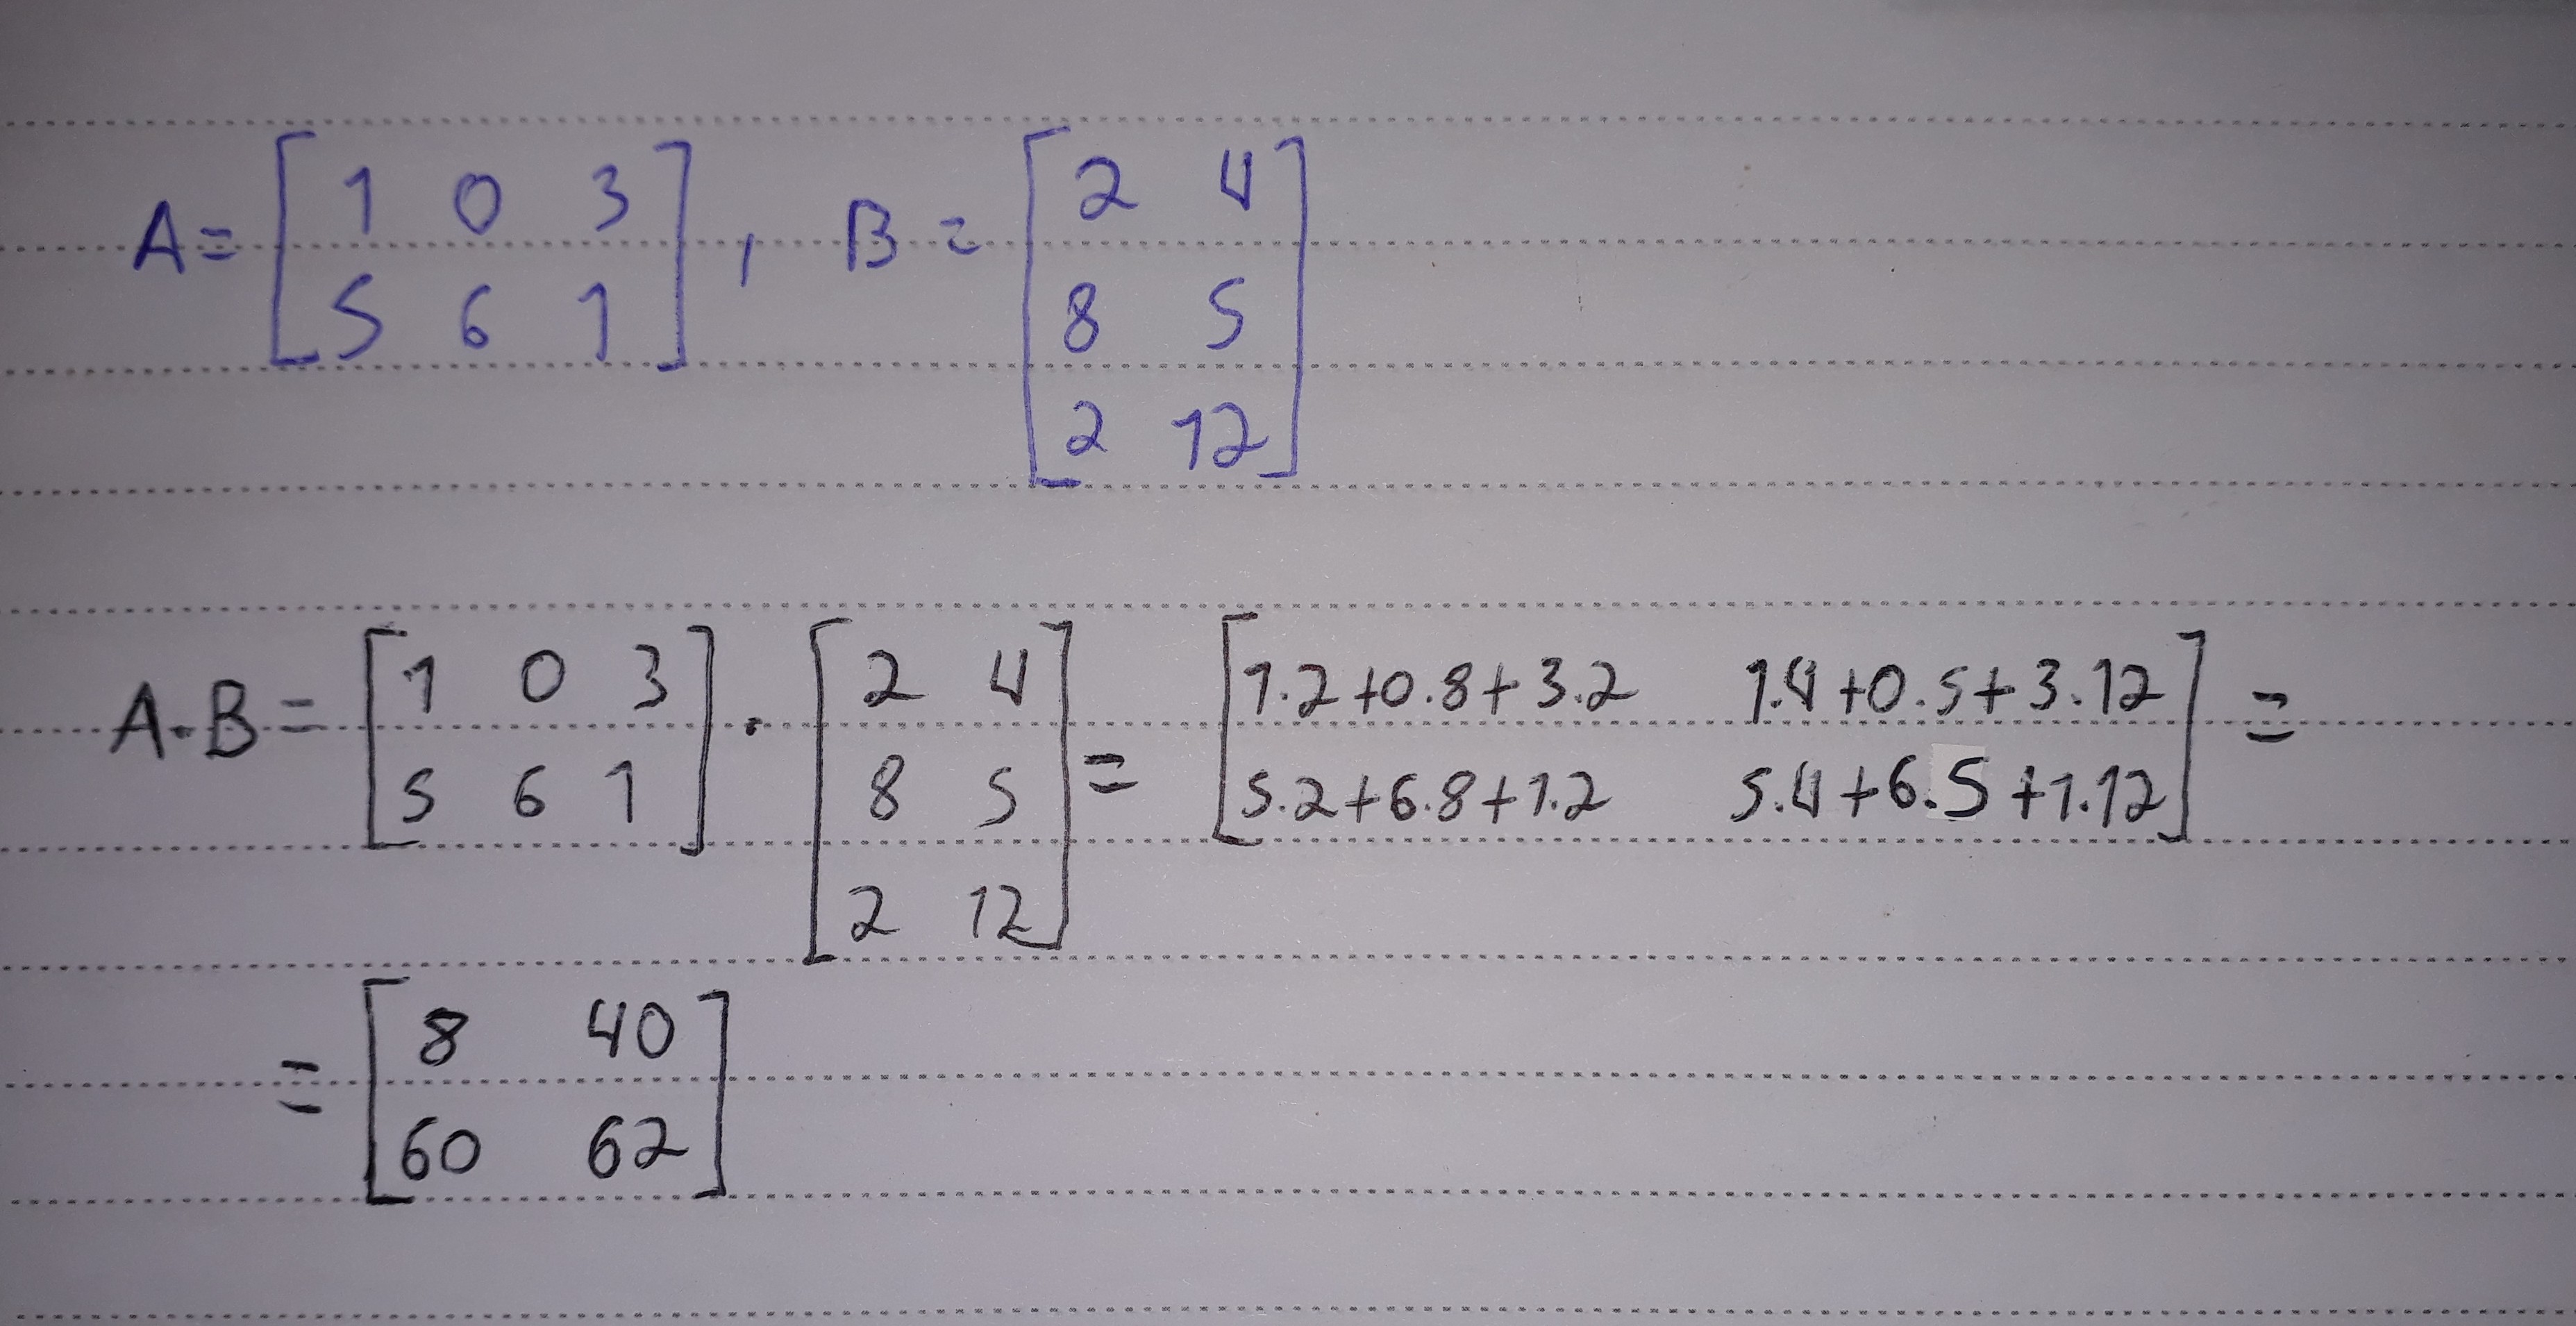 A = [ 1 0 3
5 6 1 ] , B = [ 2 4
8 5
2 12 ]
A·B = [ 1 0 3
5 6 1 ] · [ 2 4
8 5
2 12 ] = [ 1.2+0.8+3.2 1.4+0.5+3.12
5.2+6.8+1.2 5.4+6.5+1.12 ] =
= [ 8 40
60 62 ]